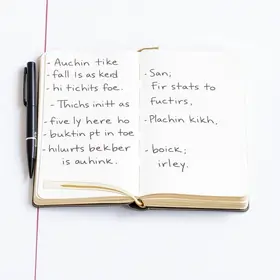 - Auchin tike
- fall Is as ked
- hi tichits foe.
- Thichs initt as
- five ly here ho
- buktin pt in toe
- hiluırts bekber
is auhink.
- San;
Fir stats to
fuctirs,
- Plachin kikh.
- boick;
irley.